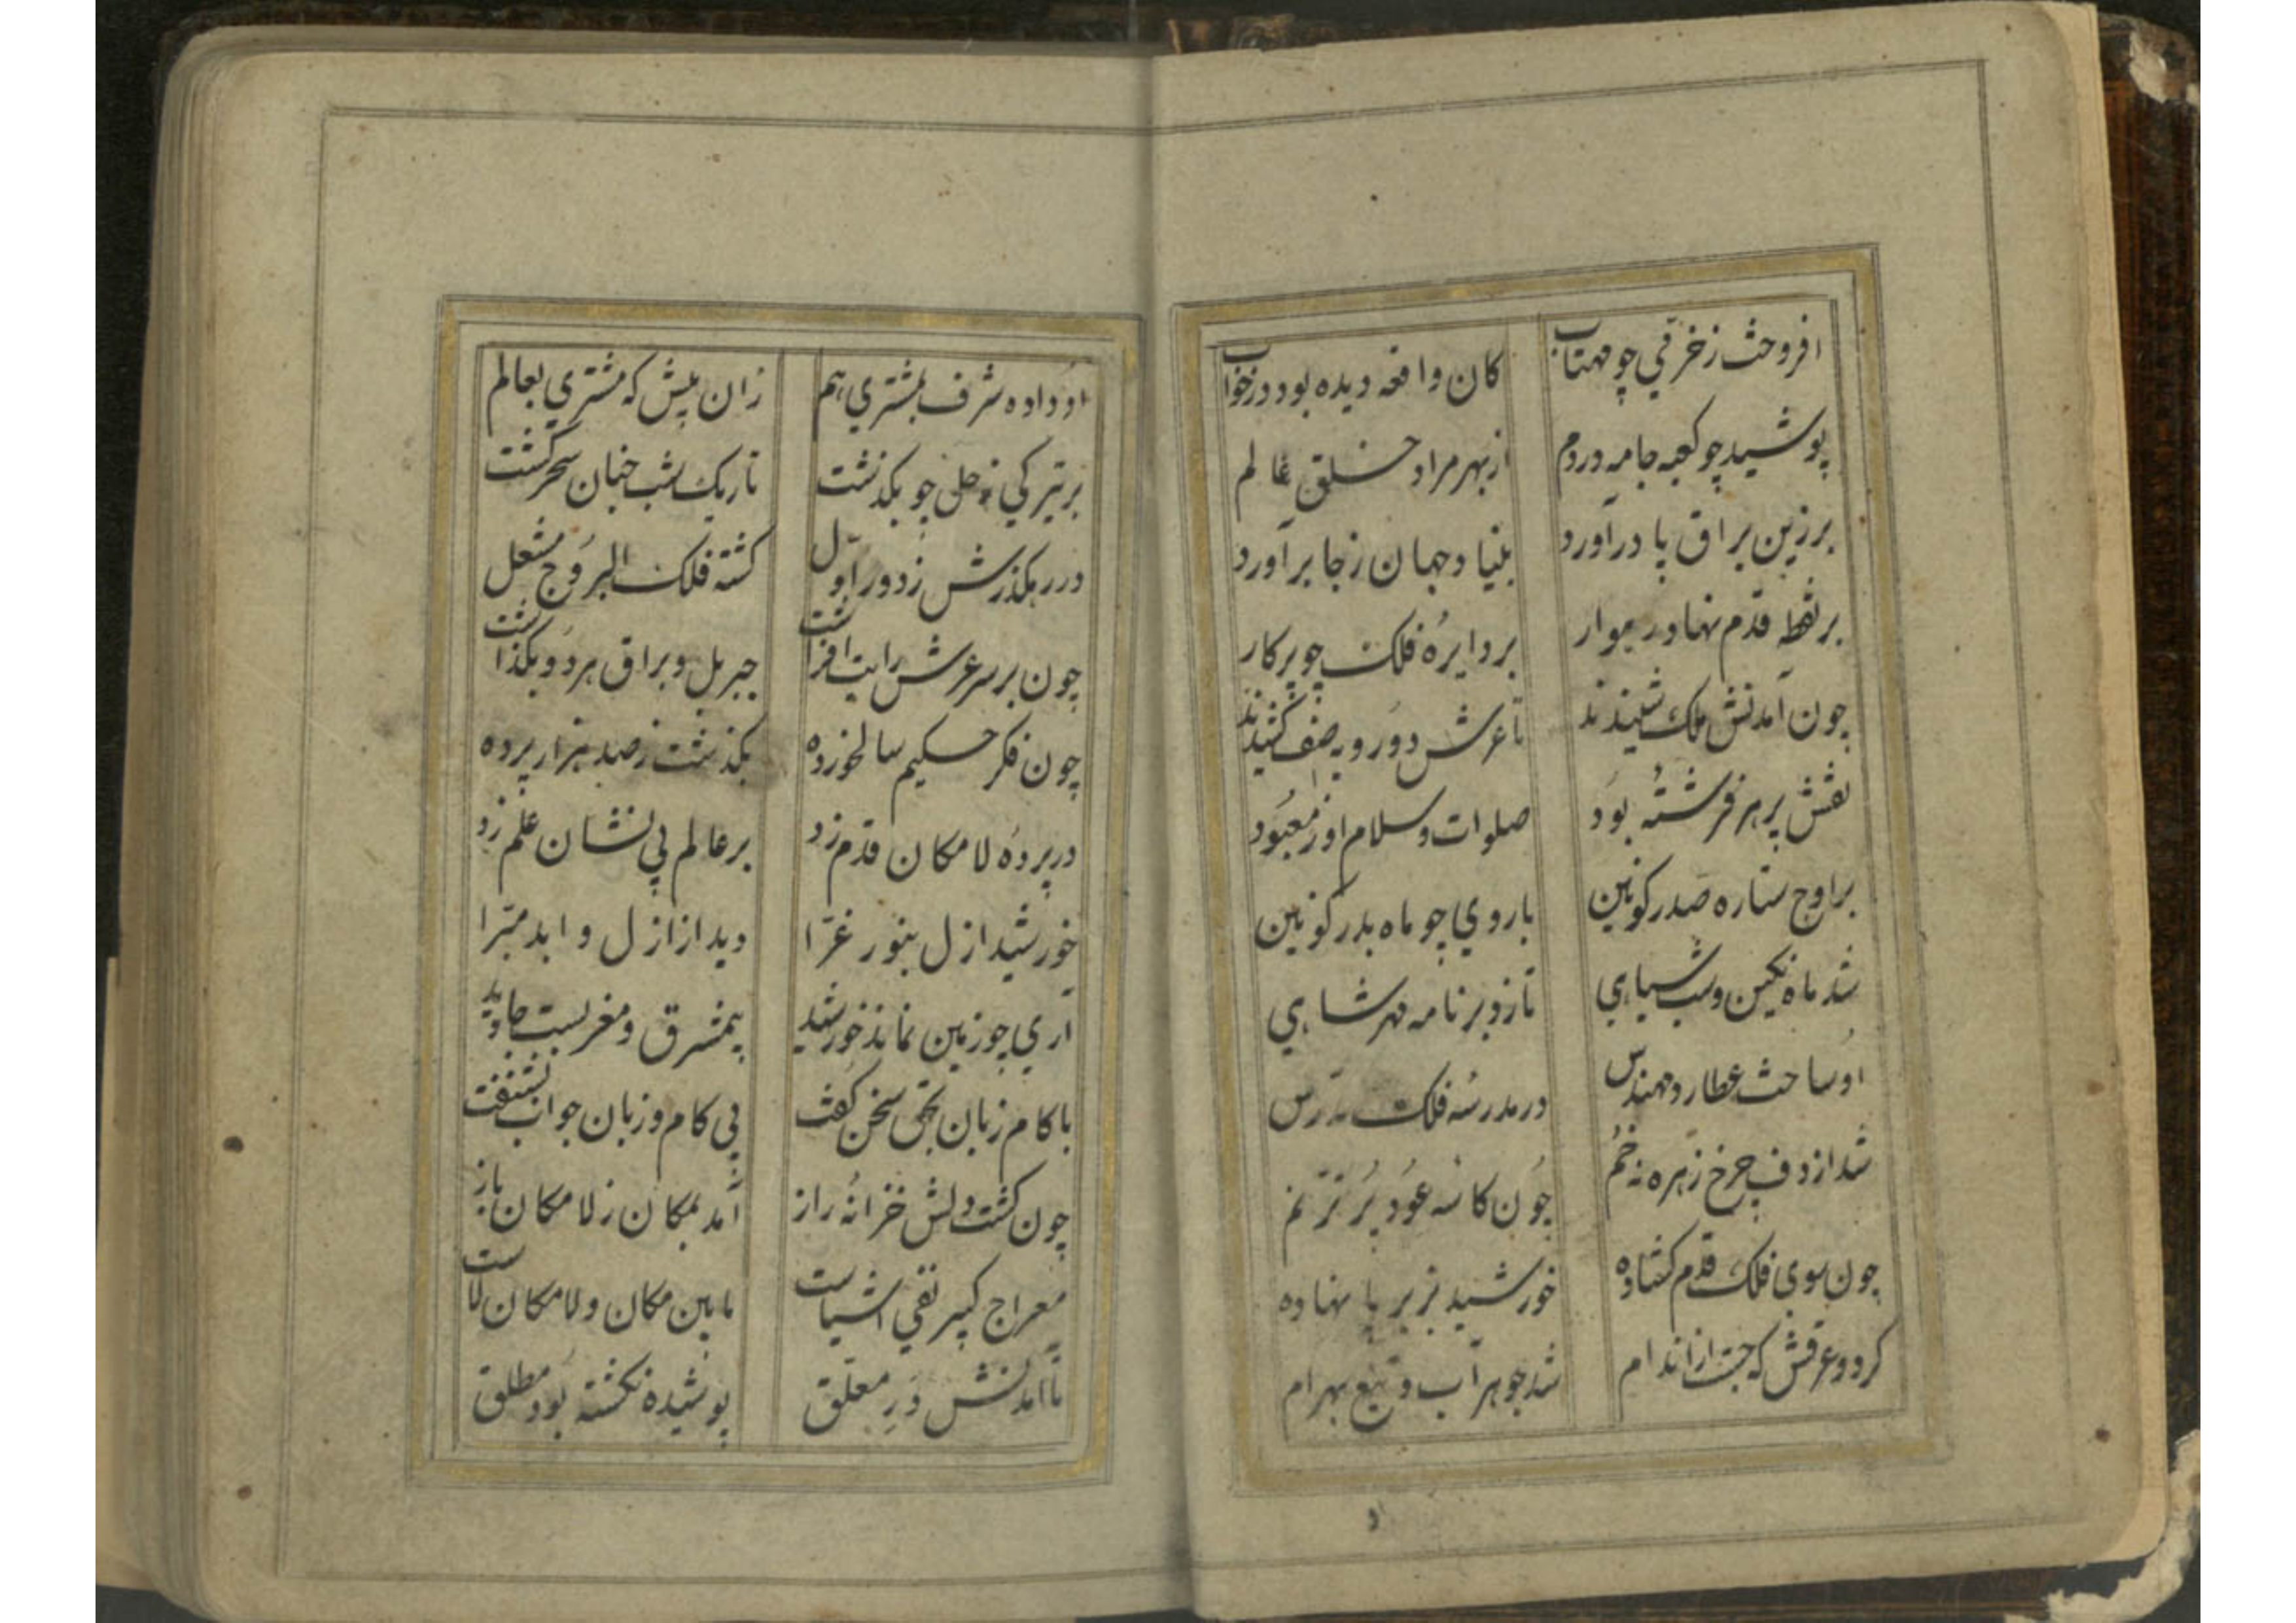 افروخت زخرقي چو مهتاب کان واقعه ديده بود در خواب
پوشيد چو کعبه جامه در دم از بهر مراد خلق عالم
بر زين براق پا در آورد بنياد جهان ز جا بر آورد
بر نقطه قدم نهاد رهوار بر دايرهٔ فلک چو پرکار
چون آمدنش ملک شنيدند تا عرش دو رويه صف کشيدند
نقش پر هر فرشته بود صلوات و سلام او ز معبود
بر اوج ستاره صدر کونين با روي چو ماه بدر کونين
شد ماه نکين و شب سياهي تا زد بر نامه مهر شاهي
او ساخت عطارد مهندس در مدرسهٔ فلک مدرس
شد از دف چرخ زهره خم چون کاسه عود پر ترنم
چون سوي فلک قدم کشاده خورشيد بزير پا نهاده
کرد و عرقش که جست از اندام شد جوهر آب و تيغ بهرام
او داده شرف بمشتري هم زان پيش که مشتري بعالم
بر تيرکي زحل چو بکذشت تاريک شب چنان سحر کشت
در رهکذرش ز دور اول کشته فلک البروج مشعل
چون بر سر عرش رايت افراشت جبريل و براق هر دو بکذاشت
چون فکر حکيم سالخورده بکذشت ز صد هزار پرده
در پردهٔ لامکان قدم زد بر عالم بي نشان علم زد
خورشيد ازل بنور غرّا ديد از ازل و ابد مبرّا
آري چو زمين نماند خورشيد بيمشرق و مغربست جاويد
با کام زبان بحق سخن کفت بي کام و زبان جواب بشنفت
چون کشت دلش خزانهٔ راز آمد بمکان ز لامکان باز
معراج کبير نفي اشياست ما بين مکان و لامکان لاست
تا آمدنش در معلق پوشيده نکشته بود مطلق